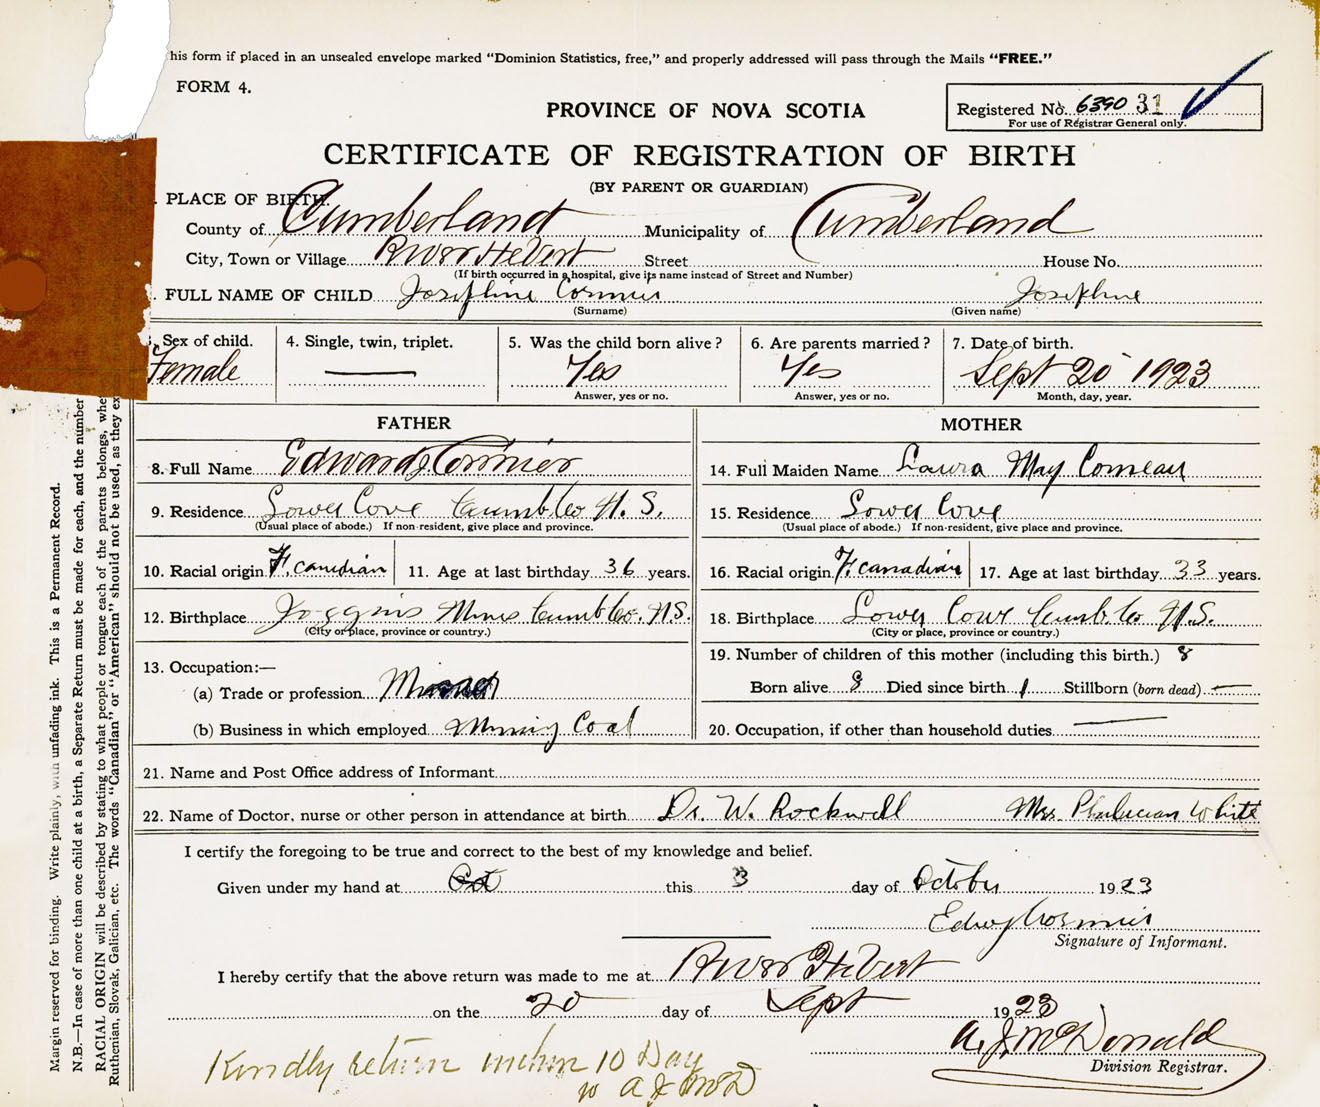 his form if placed in an unsealed envelope marked "Dominion Statistics, free," and properly addressed will pass through the Mails "FREE."
FORM 4.
PROVINCE OF NOVA SCOTIA
Registered No. 6390 31
For use of Registrar General only.
CERTIFICATE OF REGISTRATION OF BIRTH
(BY PARENT OR GUARDIAN)
PLACE OF BIRTH.
County of Cumberland Municipality of Cumberland
City, Town or Village River Hebert Street House No.
(If birth occurred in a hospital, give its name instead of Street and Number)
FULL NAME OF CHILD Josephine Cormier Josephine
(Surname) (Given name)
3. Sex of child. 4. Single, twin, triplet. 5. Was the child born alive? 6. Are parents married? 7. Date of birth.
Female — Yes Yes Sept 20 1923
Answer, yes or no. Answer, yes or no. Month, day, year.
FATHER MOTHER
8. Full Name Edward J Cormier 14. Full Maiden Name Laura May Comeau
9. Residence Lower Cove Cumb. Co N. S. 15. Residence Lower Cove
(Usual place of abode.) If non-resident, give place and province. (Usual place of abode.) If non-resident, give place and province.
10. Racial origin F. canadian 11. Age at last birthday 36 years. 16. Racial origin F. canadian 17. Age at last birthday 33 years.
12. Birthplace Joggins Mines Cumb Co. N.S. 18. Birthplace Lower Cove Cumb. Co N.S.
(City or place, province or country.) (City or place, province or country.)
13. Occupation:— 19. Number of children of this mother (including this birth.) 8
(a) Trade or profession Born alive 8 Died since birth 1 Stillborn (born dead) —
(b) Business in which employed Mining Coal 20. Occupation, if other than household duties —
21. Name and Post Office address of Informant
22. Name of Doctor, nurse or other person in attendance at birth Dr. W. Rockwell Mrs. White
I certify the foregoing to be true and correct to the best of my knowledge and belief.
Given under my hand at this 3 day of October 1923
Edw J Cormier
Signature of Informant.
I hereby certify that the above return was made to me at River Hebert
on the 20 day of Sept 1923
A. J. McDonald
Division Registrar.
Kindly return within 10 Day
to A J McD
Margin reserved for binding. Write plainly, with unfading ink. This is a Permanent Record.
N.B.—In case of more than one child at a birth, a Separate Return must be made for each, and the number
RACIAL ORIGIN will be described by stating to what people or tongue each of the parents belongs, whe
Ruthenian, Slovak, Galician, etc. The words "Canadian" or "American" should not be used, as they ex